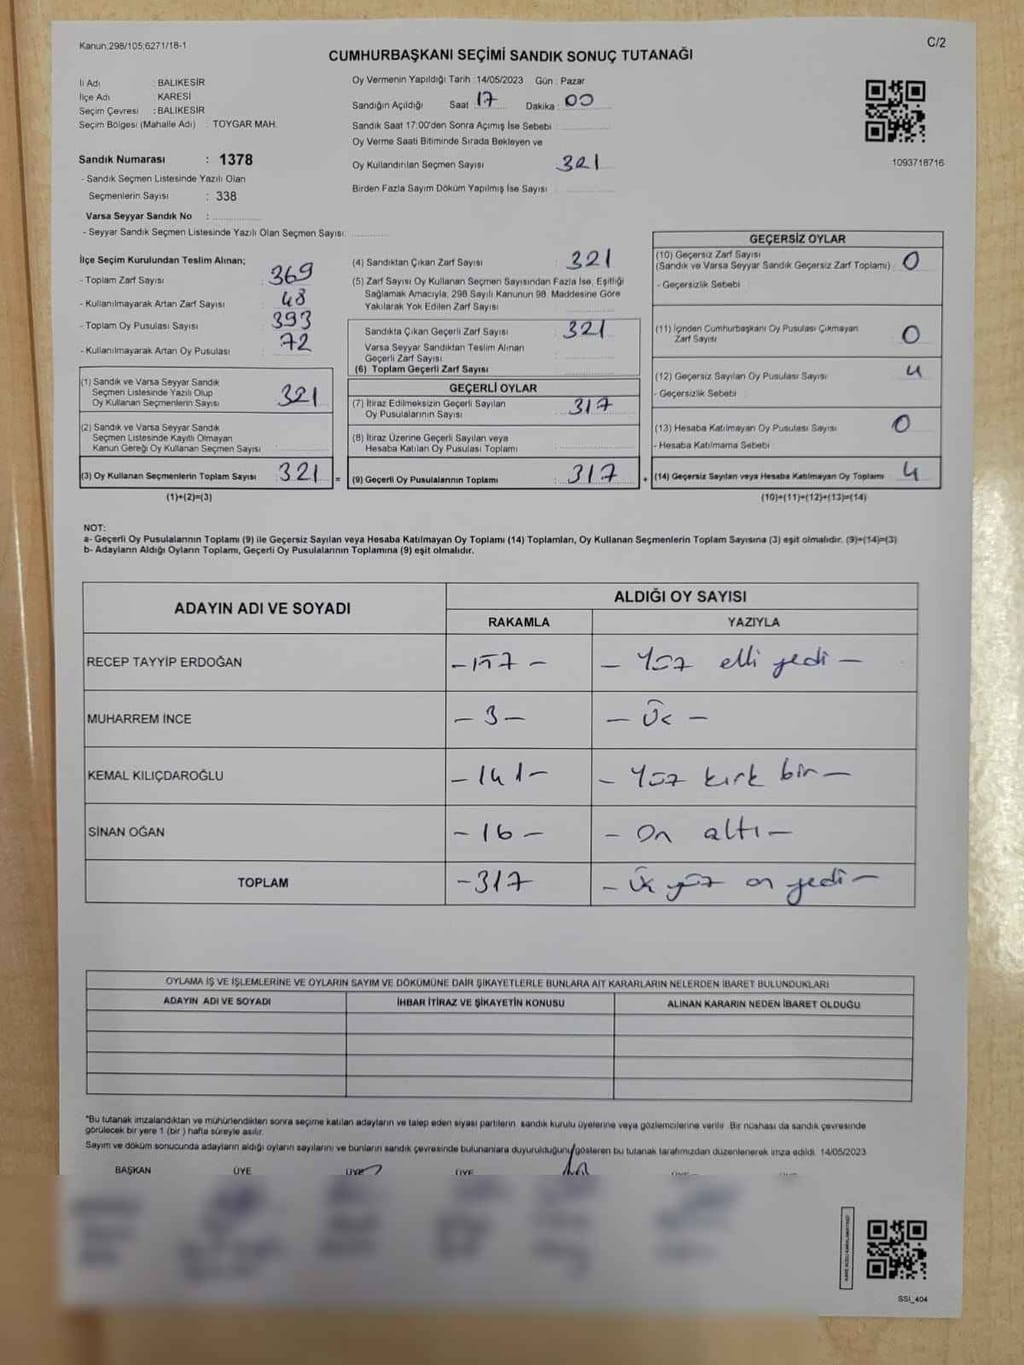 Kanun;298/105;6271/18-1
C/2
CUMHURBAŞKANI SEÇİMİ SANDIK SONUÇ TUTANAĞI
İl Adı : BALIKESİR
İlçe Adı : KARESİ
Seçim Çevresi : BALIKESİR
Seçim Bölgesi (Mahalle Adı) : TOYGAR MAH.
Sandık Numarası : 1378
- Sandık Seçmen Listesinde Yazılı Olan
Seçmenlerin Sayısı : 338
Varsa Seyyar Sandık No :
- Seyyar Sandık Seçmen Listesinde Yazılı Olan Seçmen Sayısı:
Oy Vermenin Yapıldığı Tarih : 14/05/2023 Gün : Pazar
Sandığın Açıldığı Saat : 17 Dakika : 00
Sandık Saat 17:00'den Sonra Açımış İse Sebebi :
Oy Verme Saati Bitiminde Sırada Bekleyen ve
Oy Kullandırılan Seçmen Sayısı : 321
Birden Fazla Sayım Döküm Yapılmış İse Sayısı :
1093718716
İlçe Seçim Kurulundan Teslim Alınan;
- Toplam Zarf Sayısı : 369
- Kullanılmayarak Artan Zarf Sayısı : 48
- Toplam Oy Pusulası Sayısı : 393
- Kullanılmayarak Artan Oy Pusulası : 72
(1) Sandık ve Varsa Seyyar Sandık
Seçmen Listesinde Yazılı Olup
Oy Kullanan Seçmenlerin Sayısı : 321
(2) Sandık ve Varsa Seyyar Sandık
Seçmen Listesinde Kayıtlı Olmayan
Kanun Gereği Oy Kullanan Seçmen Sayısı :
(3) Oy Kullanan Seçmenlerin Toplam Sayısı : 321 =
(1)+(2)=(3)
(4) Sandıktan Çıkan Zarf Sayısı : 321
(5) Zarf Sayısı Oy Kullanan Seçmen Sayısından Fazla İse, Eşitliği
Sağlamak Amacıyla; 298 Sayılı Kanunun 98. Maddesine Göre
Yakılarak Yok Edilen Zarf Sayısı :
Sandıkta Çıkan Geçerli Zarf Sayısı : 321
Varsa Seyyar Sandıktan Teslim Alınan
Geçerli Zarf Sayısı :
(6) Toplam Geçerli Zarf Sayısı :
GEÇERLİ OYLAR
(7) İtiraz Edilmeksizin Geçerli Sayılan
Oy Pusulalarının Sayısı : 317
(8) İtiraz Üzerine Geçerli Sayılan veya
Hesaba Katılan Oy Pusulası Toplamı :
(9) Geçerli Oy Pusulalarının Toplamı : 317 +
GEÇERSİZ OYLAR
(10) Geçersiz Zarf Sayısı : 0
(Sandık ve Varsa Seyyar Sandık Geçersiz Zarf Toplamı)
- Geçersizlik Sebebi
(11) İçinden Cumhurbaşkanı Oy Pusulası Çıkmayan
Zarf Sayısı : 0
(12) Geçersiz Sayılan Oy Pusulası Sayısı : 4
- Geçersizlik Sebebi
(13) Hesaba Katılmayan Oy Pusulası Sayısı : 0
- Hesaba Katılmama Sebebi
(14) Geçersiz Sayılan veya Hesaba Katılmayan Oy Toplamı : 4
(10)+(11)+(12)+(13)=(14)
NOT:
a- Geçerli Oy Pusulalarının Toplamı (9) ile Geçersiz Sayılan veya Hesaba Katılmayan Oy Toplamı (14) Toplamları, Oy Kullanan Seçmenlerin Toplam Sayısına (3) eşit olmalıdır. (9)+(14)=(3)
b- Adayların Aldığı Oyların Toplamı, Geçerli Oy Pusulalarının Toplamına (9) eşit olmalıdır.
ADAYIN ADI VE SOYADI
ALDIĞI OY SAYISI
RAKAMLA YAZIYLA
RECEP TAYYİP ERDOĞAN - 157 - - Yüz elli yedi -
MUHARREM İNCE - 3 - - Üç -
KEMAL KILIÇDAROĞLU - 141 - - Yüz kırk bir -
SİNAN OĞAN - 16 - - On altı -
TOPLAM - 317 - Üç yüz on yedi -
OYLAMA İŞ VE İŞLEMLERİNE VE OYLARIN SAYIM VE DÖKÜMÜNE DAİR ŞİKAYETLERLE BUNLARA AİT KARARLARIN NELERDEN İBARET BULUNDUKLARI
ADAYIN ADI VE SOYADI İHBAR İTİRAZ VE ŞİKAYETİN KONUSU ALINAN KARARIN NEDEN İBARET OLDUĞU
*Bu tutanak imzalandıktan ve mühürlendikten sonra seçime katılan adayların ve talep eden siyasi partilerin sandık kurulu üyelerine veya gözlemcilerine verilir. Bir nüshası da sandık çevresinde
görülecek bir yere 1 (bir ) hafta süreyle asılır.
Sayım ve döküm sonucunda adayların aldığı oyların sayılarını ve bunların sandık çevresinde bulunanlara duyurulduğunu gösteren bu tutanak tarafımızdan düzenlenerek imza edildi. 14/05/2023
BAŞKAN ÜYE ÜYE ÜYE
SSI_404